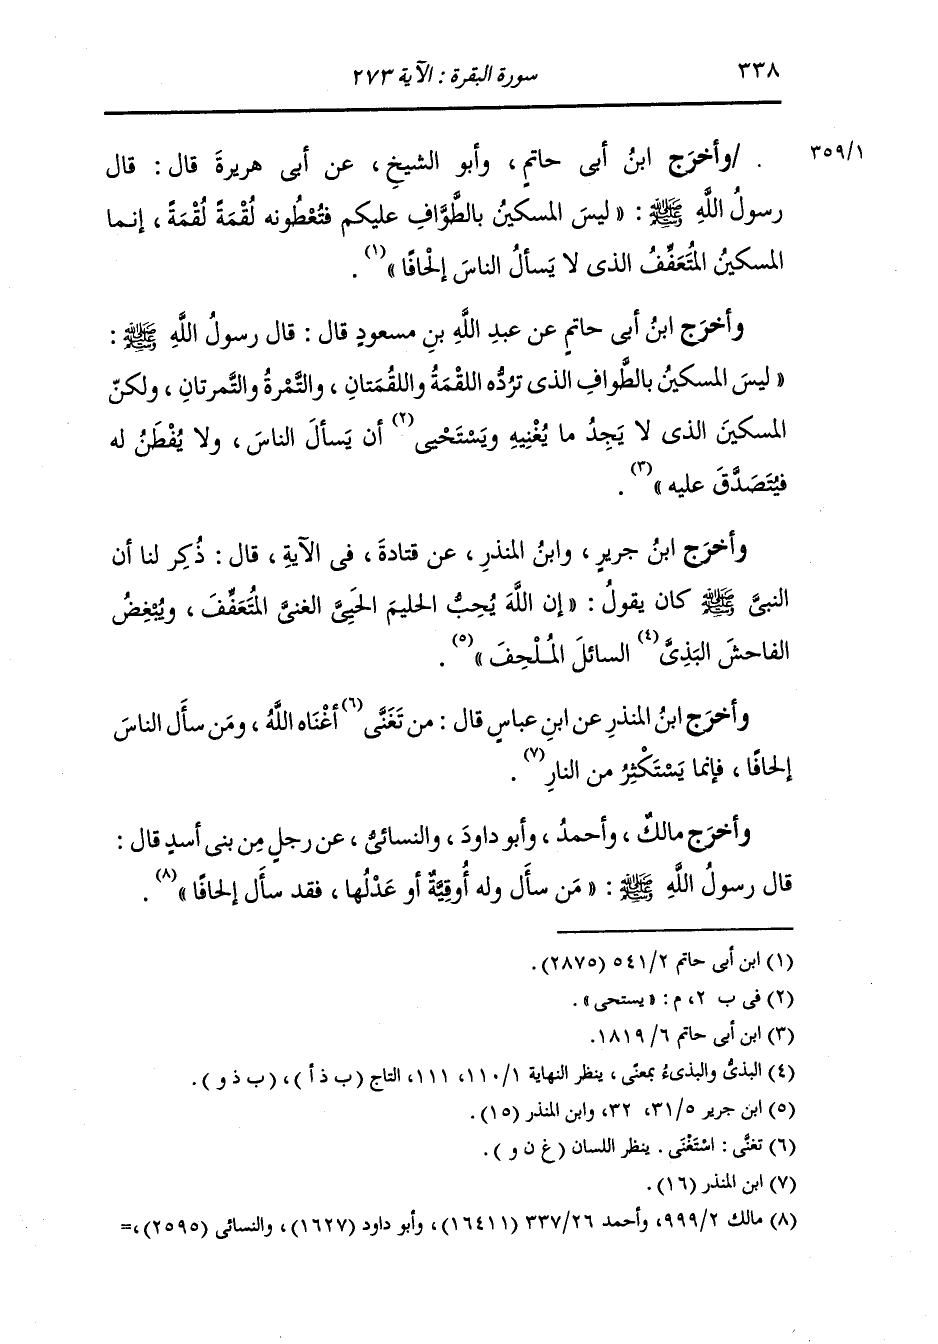 ٣٣٨ سورة البقرة : الآية ٢٧٣
٣٥٩/١ . /وأخرَج ابنُ أبى حاتمٍ ، وأبو الشيخِ ، عن أبى هريرةَ قال : قال
رسولُ اللَّهِ ﷺ : « ليسَ المسكينُ بالطَّوَّافِ عليكم فتُعْطُونه لُقْمَةً لُقْمَةً ، إنـما
المسكينُ المُتَعَفِّفُ الذى لا يَسألُ الناسَ إلْحافًا »(١) .
وأخرَج ابنُ أبى حاتمٍ عن عبدِ اللَّهِ بنِ مسعودٍ قال : قال رسولُ اللَّهِ ﷺ :
« ليسَ المسكينُ بالطَّوافِ الذى ترُدُّه اللقْمَةُ واللقُمَتانِ ، والتَّمْرةُ والتَّمرتانِ ، ولكنّ
المسكينَ الذى لا يَجِدُ ما يُغْنِيهِ ويَسْتَحْيى(٢) أن يَسألَ الناسَ ، ولا يُفْطَنُ له
فيُتَصَدَّقَ عليه »(٣) .
وأخرَج ابنُ جريرٍ ، وابنُ المنذرِ ، عن قتادةَ ، فى الآيةِ ، قال : ذُكِر لنا أن
النبىَّ ﷺ كان يقولُ : « إن اللَّهَ يُحِبُّ الحليمَ الحَيِىَّ الغنىَّ المُتَعَفِّفَ ، ويُبْغِضُ
الفاحشَ البَذِىَّ(٤) السائلَ المُـلْحِفَ »(٥) .
وأخرَج ابنُ المنذرِ عن ابنِ عباسٍ قال : من تَغَنَّى(٦) أغْنَاه اللَّهُ ، ومَن سأَل الناسَ
إلحافًا ، فإنما يَسْتَكْثِرُ من النارِ(٧) .
وأخرَج مالكٌ ، وأحمدُ ، وأبو داودَ ، والنسائىُّ ، عن رجلٍ مِن بنى أسدٍ قال :
قال رسولُ اللَّهِ ﷺ : « مَن سأَل وله أُوقِيَّةٌ أو عَدْلُها ، فقد سأَل إلحافًا »(٨) .
(١) ابن أبى حاتم ٥٤١/٢ (٢٨٧٥).
(٢) فى ب ٢، م : « يستحى» .
(٣) ابن أبى حاتم ٦/ ١٨١٩.
(٤) البذىُّ والبذىءُ بمعنًى ، ينظر النهاية ١١٠/١، ١١١، التاج (ب ذ أ ) ، (ب ذ و ) .
(٥) ابن جرير ٣١/٥، ٣٢، وابن المنذر (١٥) .
(٦) تغنَّى : اسْتَغْنَى . ينظر اللسان (غ ن و ) .
(٧) ابن المنذر (١٦) .
(٨) مالك ٩٩٩/٢، وأحمد ٣٣٧/٢٦ (١٦٤١١)، وأبو داود (١٦٢٧)، والنسائى (٢٥٩٥)،=